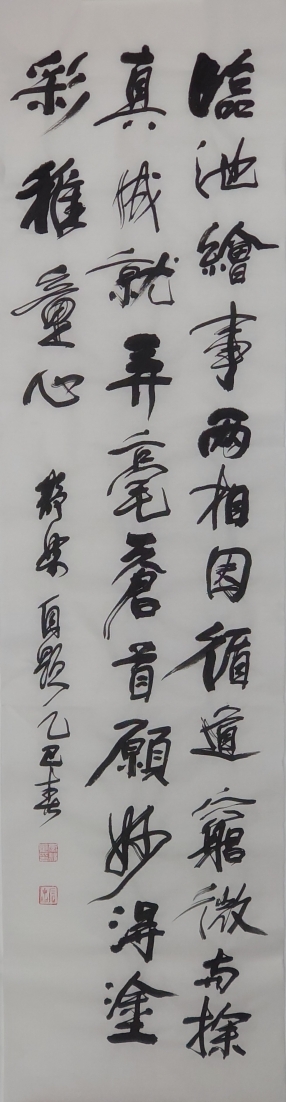 臨池繪事兩相因循道窮微與探
真成就弄毫蒼首願妙得塗
彩稚童心
自題乙巳春